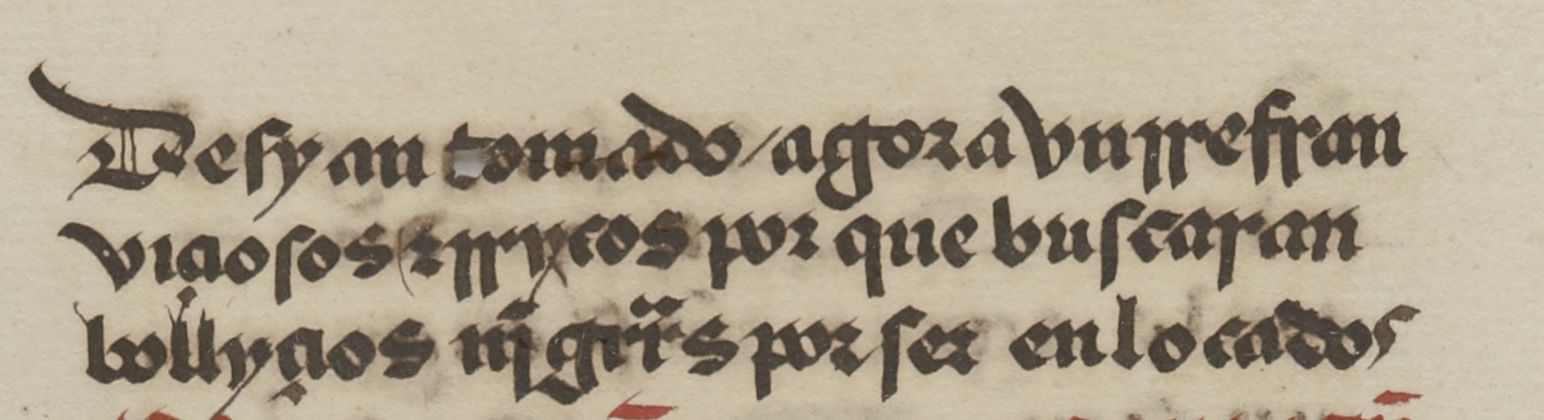 Desy an tomado / agora vn rrefran
viciosos ⁊ rrycos por que buscaran
bollyçios nj̃ grr̃s por ser en locados